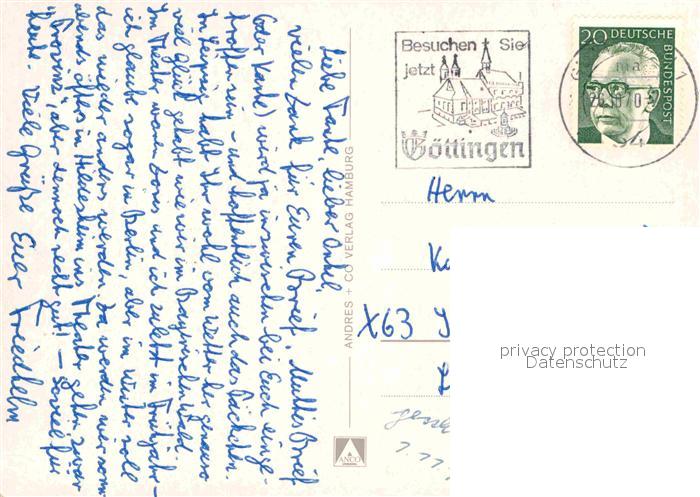 Liebe Tante, lieber Onkel,
vielen Dank für Euren Brief. Muttis Brief
(oder Karte) wird ja inzwischen bei Euch einge-
troffen sein – und hoffentlich auch das Päckchen.
In habt Ihr wohl vom Wetter her genauso
viel Glück gehabt wie wir im Bayrischen Wald.
Im Theater waren Lores und ich zuletzt im Frühjahr –
ich glaube sogar in Berlin, aber im Winter soll
das wieder anders werden. Da werden wir sonn-
abends öfters in Hildesheim ins Theater gehn, zwar
"Provinz", aber dennoch recht gut! – Soviel für
heute. Viele Grüße Euer Friedhelm
ANDRES + CO VERLAG HAMBURG
ANCO
Besuchen Sie
jetzt
Göttingen
20 DEUTSCHE BUNDESPOST
34
Herrn
X63
privacy protection
Datenschutz